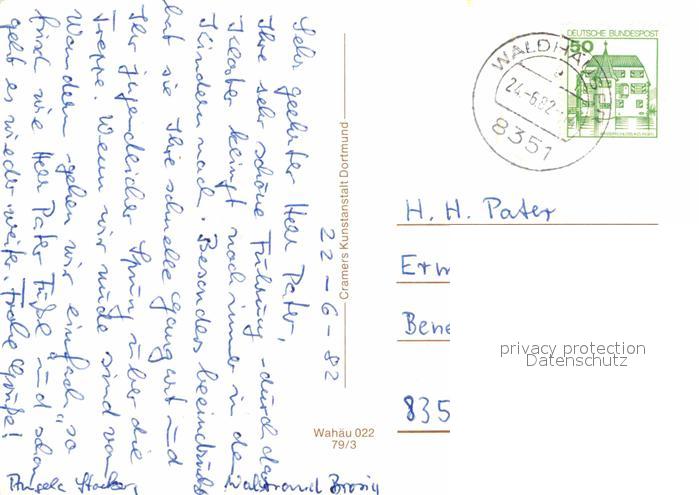 22-6-82
Sehr geehrter Herr Pater,
Ihre sehr schöne Führung durch das
Kloster klingt noch immer in den
Kindern nach. Besonders beeindruckt
hat sie Ihre schnelle Gangart und
Ihr jugendlicher Sprung über die
Treppe. Wenn wir müde sind vom
Wandern gehen wir einfach "so
frisch wie Herr Pater" und schon
geht es wieder weiter. Frohe Grüße!
Angela
Waltraud
Cramers Kunstanstalt Dortmund
Wahäu 022
79/3
DEUTSCHE BUNDESPOST
50
WALDHÄUSER
24.-6.82
8351
H. H. Pater
Erw
Bene
835
privacy protection
Datenschutz